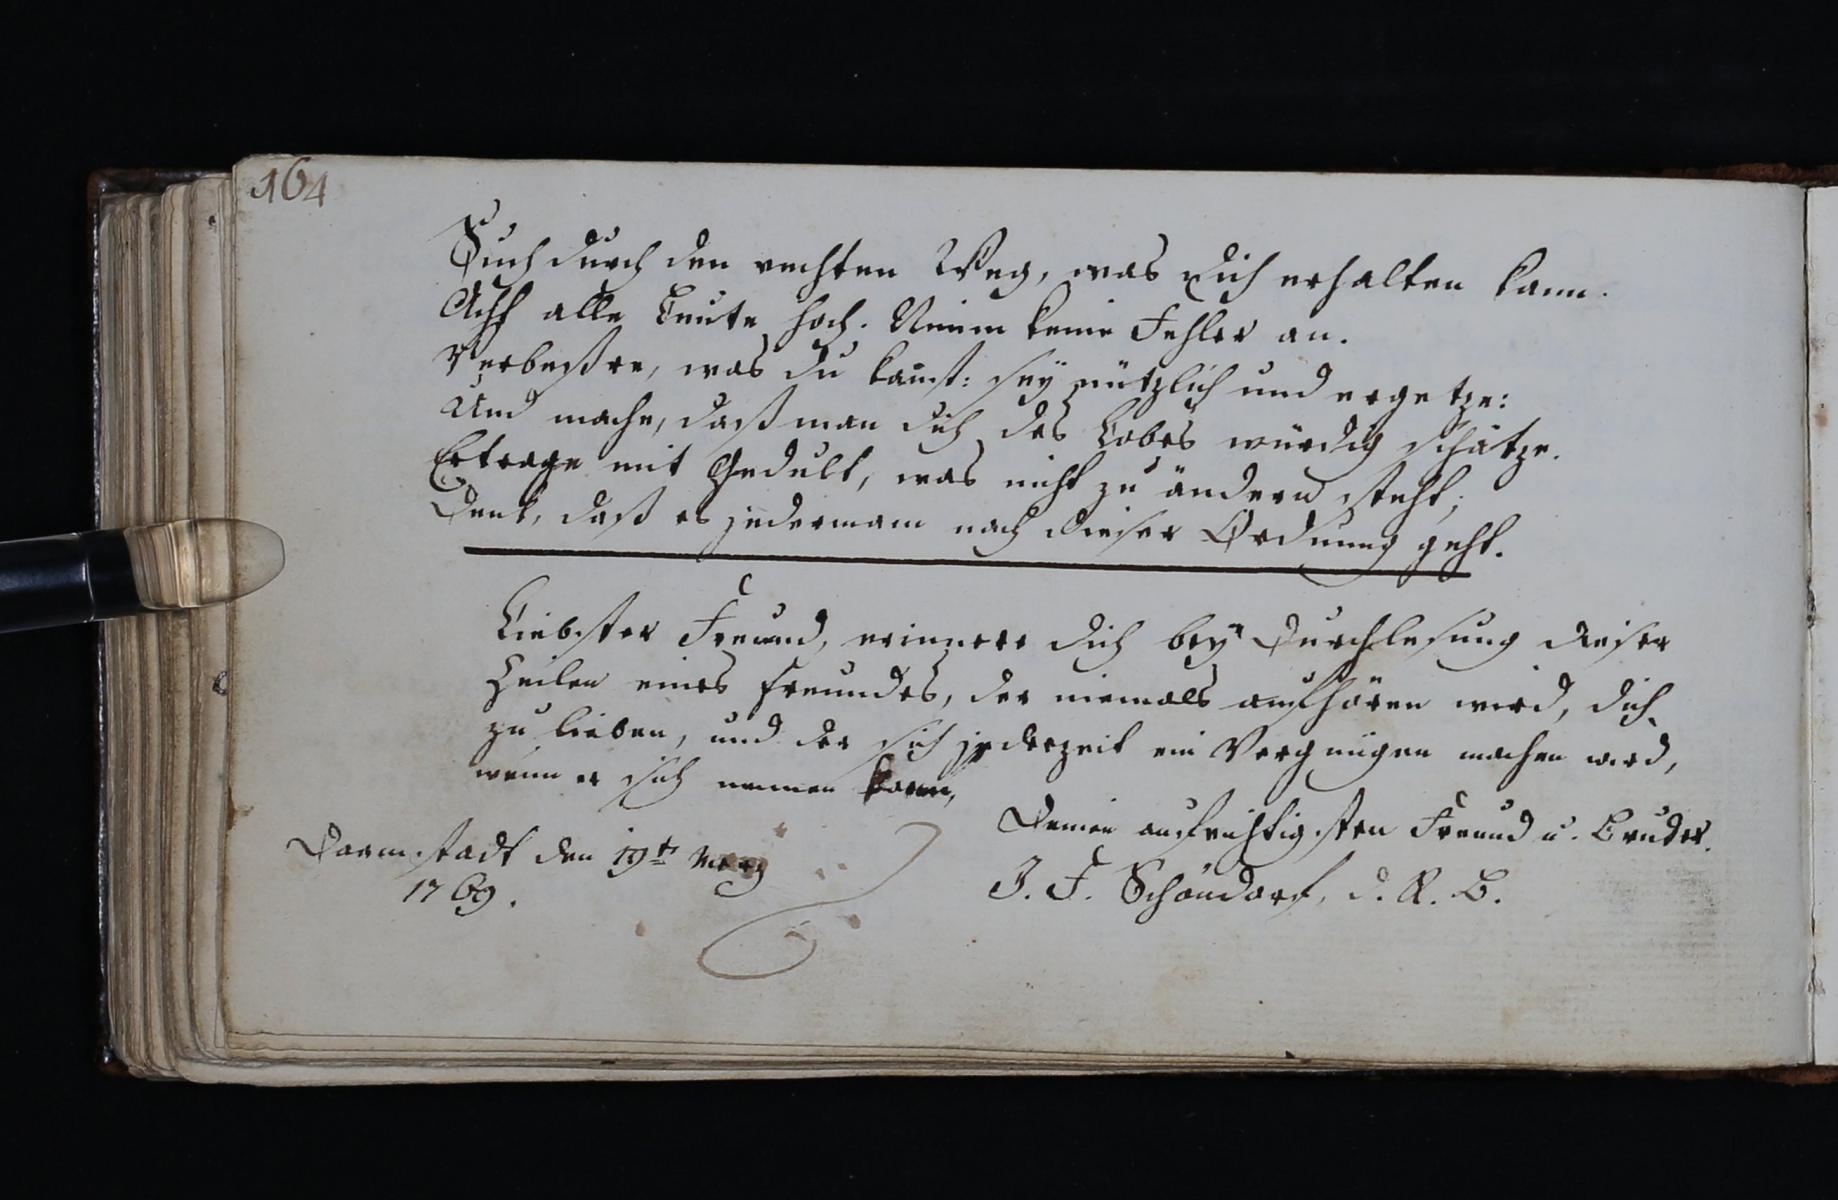 164
Such durch den rechten Weg, was dich erhalten kann.
Acht alle Leute hoch. Nimm keine Fehler an.
Verbeßre, was du kanst: sey nützlich und ergetze:
Und mache, daß man dich des Lobes würdig schätze.
Ertrage mit Gedult, was nicht zu ändern steht;
Denk, daß es jedermann nach dieser Ordnung geht.
Liebster Freund, erinnere dich bey Durchlesung dieser
Zeilen eines Freundes, der niemals aufhören wird, dich
zu lieben, und der sich jederzeit ein Vergnügen machen wird,
wenn er sich nennen kann,
Deinen aufrichtigsten Freund u. Bruder.
Darmstadt den 19t Merz
1769.
J. F. Schöndorf, d. R. B.